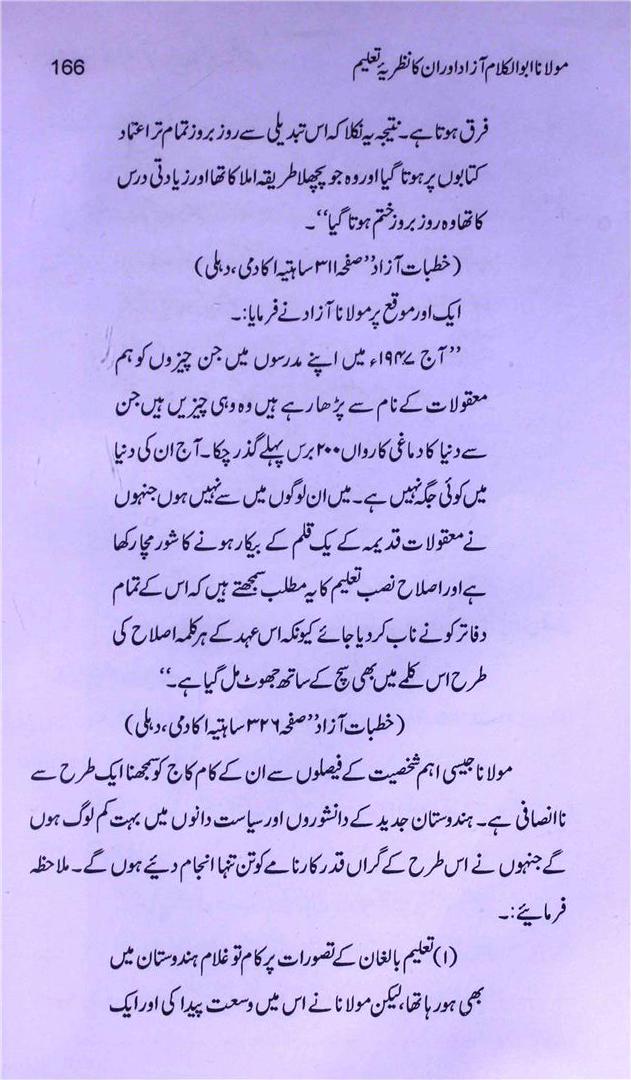 مولانا ابوالکلام آزاد اور ان کا نظریۂ تعلیم 166
فرق ہوتا ہے۔ نتیجہ یہ نکلا کہ اس تبدیلی سے روز بروز تمام تر اعتماد
کتابوں پر ہوتا گیا اور وہ جو پچھلا طریقہ املا کا تھا اور زیادتی درس
کا تھا وہ روز بروز ختم ہوتا گیا‘‘۔
(خطبات آزاد’’ صفحہ ۳۱۱ ساہتیہ اکادمی، دہلی)
ایک اور موقع پر مولانا آزاد نے فرمایا:۔
’’آج ۱۹۴۷ء میں اپنے مدرسوں میں جن چیزوں کو ہم
معقولات کے نام سے پڑھا رہے ہیں وہ وہی چیزیں ہیں جن
سے دنیا کا دماغی کارواں ۲۰۰ برس پہلے گذر چکا۔ آج ان کی دنیا
میں کوئی جگہ نہیں ہے۔ میں ان لوگوں میں سے نہیں ہوں جنہوں
نے معقولات قدیمہ کے یک قلم کے بیکار ہونے کا شور مچا رکھا
ہے اور اصلاح نصب تعلیم کا یہ مطلب سمجھتے ہیں کہ اس کے تمام
دفاتر کو نے ناب کر دیا جائے کیونکہ اس عہد کے ہر کلمہ اصلاح کی
طرح اس کلمے میں بھی سچ کے ساتھ جھوٹ مل گیا ہے۔‘‘
(خطبات آزاد’’ صفحہ ۳۲۶ ساہتیہ اکادمی، دہلی)
مولانا جیسی اہم شخصیت کے فیصلوں سے ان کے کام کاج کو سمجھنا ایک طرح سے
نا انصافی ہے۔ ہندوستان جدید کے دانشوروں اور سیاست دانوں میں بہت کم لوگ ہوں
گے جنہوں نے اس طرح کے گراں قدر کارنامے کو تن تنہا انجام دیئے ہوں گے۔ ملاحظہ
فرمائیے:۔
(۱) تعلیم بالغان کے تصورات پر کام تو غلام ہندوستان میں
بھی ہو رہا تھا، لیکن مولانا نے اس میں وسعت پیدا کی اور ایک